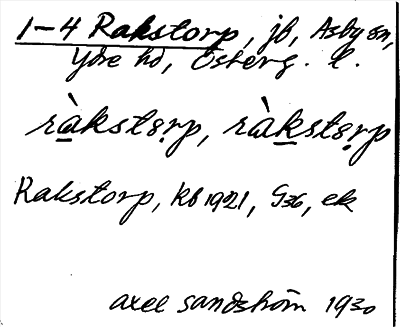 1-4 Rakstorp, jb, Asby sn,
Ydre hd, Österg. l.
ràkstɷrp, ràkstɷrp
Rakstorp, kb 1921, G36, ek
Axel Sandström 1930